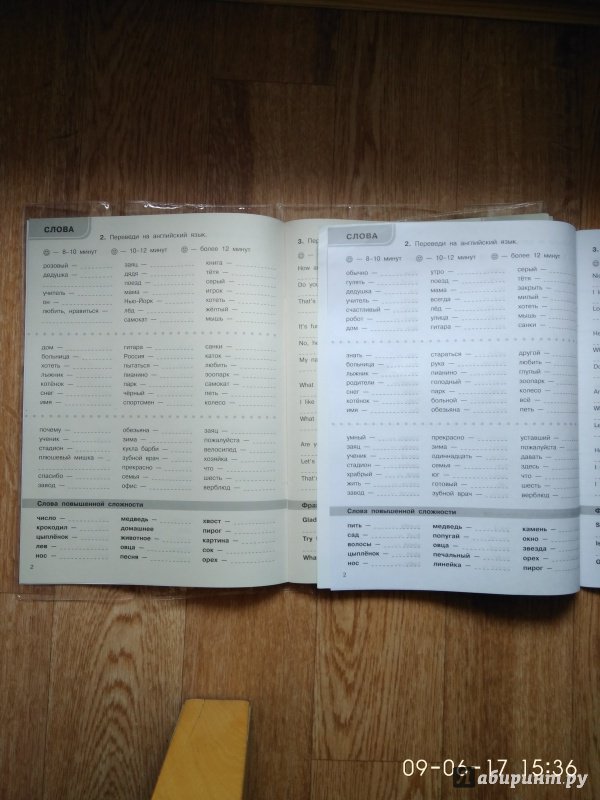 СЛОВА
2. Переведи на английский язык.
— 8–10 минут — 10–12 минут — более 12 минут
розовый — заяц — книга —
дедушка — дядя — тётя —
поезд — серый —
учитель — мама — игрок —
он — Нью-Йорк — хотеть —
любить, нравиться — лёд — жёлтый —
самокат — мышь —
дом — гитара — санки —
больница — Россия — каток —
хотеть — пытаться — любить —
лыжник — пианино — зоопарк —
котёнок — парк — самокат —
снег — чёрный — петь —
имя — спортсмен — колесо —
почему — обезьяна — заяц —
ученик — зима — пожалуйста —
стадион — кукла барби — велосипед —
плюшевый мишка — зубной врач — хозяйка —
прекрасно — что —
спасибо — семья — шесть —
завод — офис — верблюд —
Слова повышенной сложности
число — медведь — хвост —
крокодил — домашнее пирог —
цыплёнок — животное — картина —
лев — овца — сок —
нос — песня — орех —
2
3. Пер
How a
Do yo
That's
It's fu
No, he
My na
What
I like
What
Are y
Let's
That's
Фраз
Glad
Try
What
СЛОВА
2. Переведи на английский язык.
— 8–10 минут — 10–12 минут — более 12 минут
обычно — утро — серый —
гулять — поезд — тётя —
дедушка — мама — закрыть —
учитель — всегда — милый —
счастливый — лёд — хотеть —
робот — улица — мышь —
дом — гитара — санки —
знать — стараться — другой —
больница — рука — любить —
лыжник — пианино — глупый —
родители — голодный — зоопарк —
снег — парк — колесо —
котёнок — больной — всё —
имя — обезьяна — петь —
умный — прекрасно — уставший —
заяц — зима — пожалуйста —
ученик — одиннадцать — давать —
стадион — семья — здесь —
храбрый — юг — что —
жить — готовый — шесть —
завод — зубной врач — верблюд —
Слова повышенной сложности
пить — медведь — камень —
сад — попугай — окно —
волосы — овца — звезда —
цыплёнок — печальный — орех —
нос — линейка — пирог —
2
3.
09-06-17 15:36
Лабиринт.ру